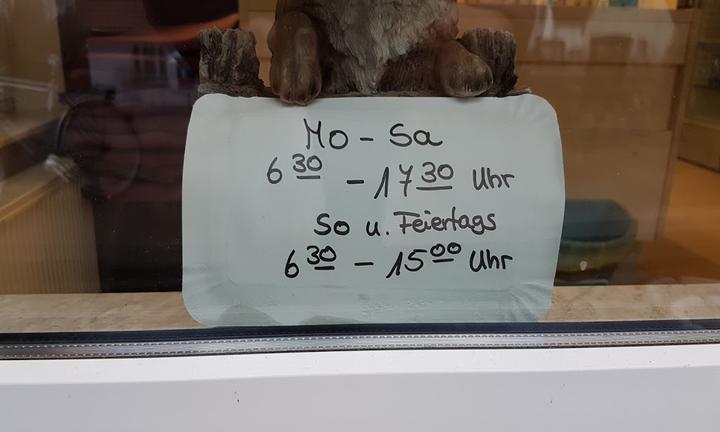 Mo - Sa
6 30 - 17 30 Uhr
So u. Feiertags
6 30 - 15 00 Uhr